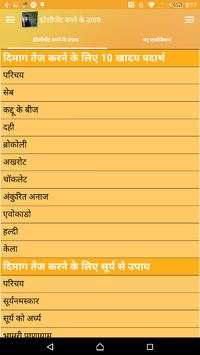 इंटेलीजेंट बनने के उपाय
इंटेलीजेंट बनने के उपाय
दिमाग तेज करने के लिए 10 खादय पदार्थ
परिचय
सेब
कद्दू के बीज
दही
ब्रोकोली
अखरोट
चॉकलेट
अंकुरित अनाज
एवोकाडो
हल्दी
केला
दिमाग तेज करने के लिए सूर्य से उपाय
परिचय
सूर्यनमस्कार
सूर्य को अर्घ्य